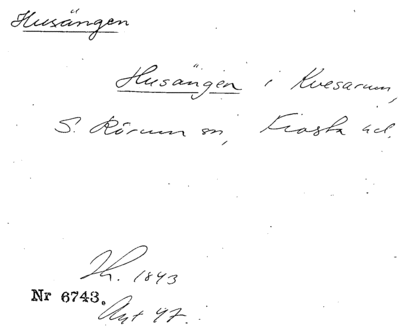 Husängen
Husängen i Kvesarum,
S. Rörum sn, Frosta hd.
Th. 1843
Nr 6743.
Akt 47.